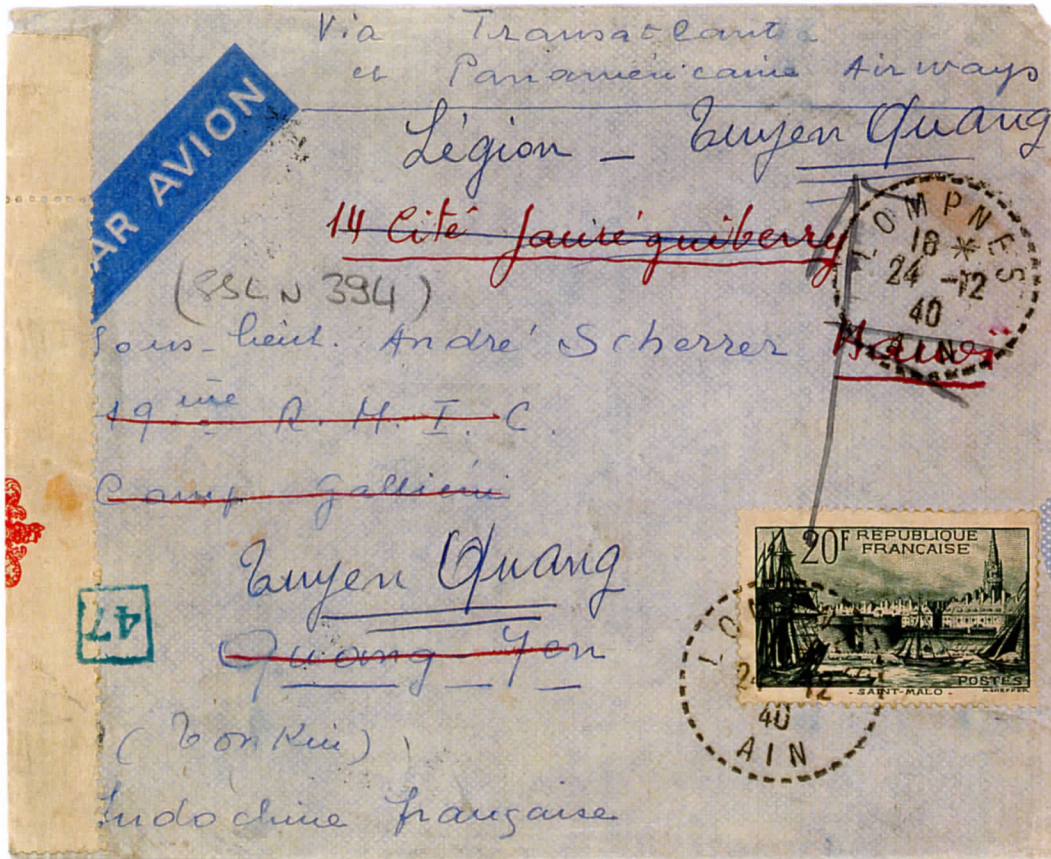 Via Transatlant
et Panaméricaine Airways
PAR AVION
Légion - Tuyen Quang
14 Cité Jauréguiberry
LOMPNES
18 *
24 -12
40
AIN
(SSL N 394)
Sous-lieut. André Scherrer Hanoi
19ème R. M. I. C.
Camp Galliéni
Tuyen Quang
47
Quang-Yen
(Tonkin)
Indochine française
20F RÉPUBLIQUE
FRANÇAISE
POSTES
- SAINT-MALO -
LO
24 -12
40
AIN